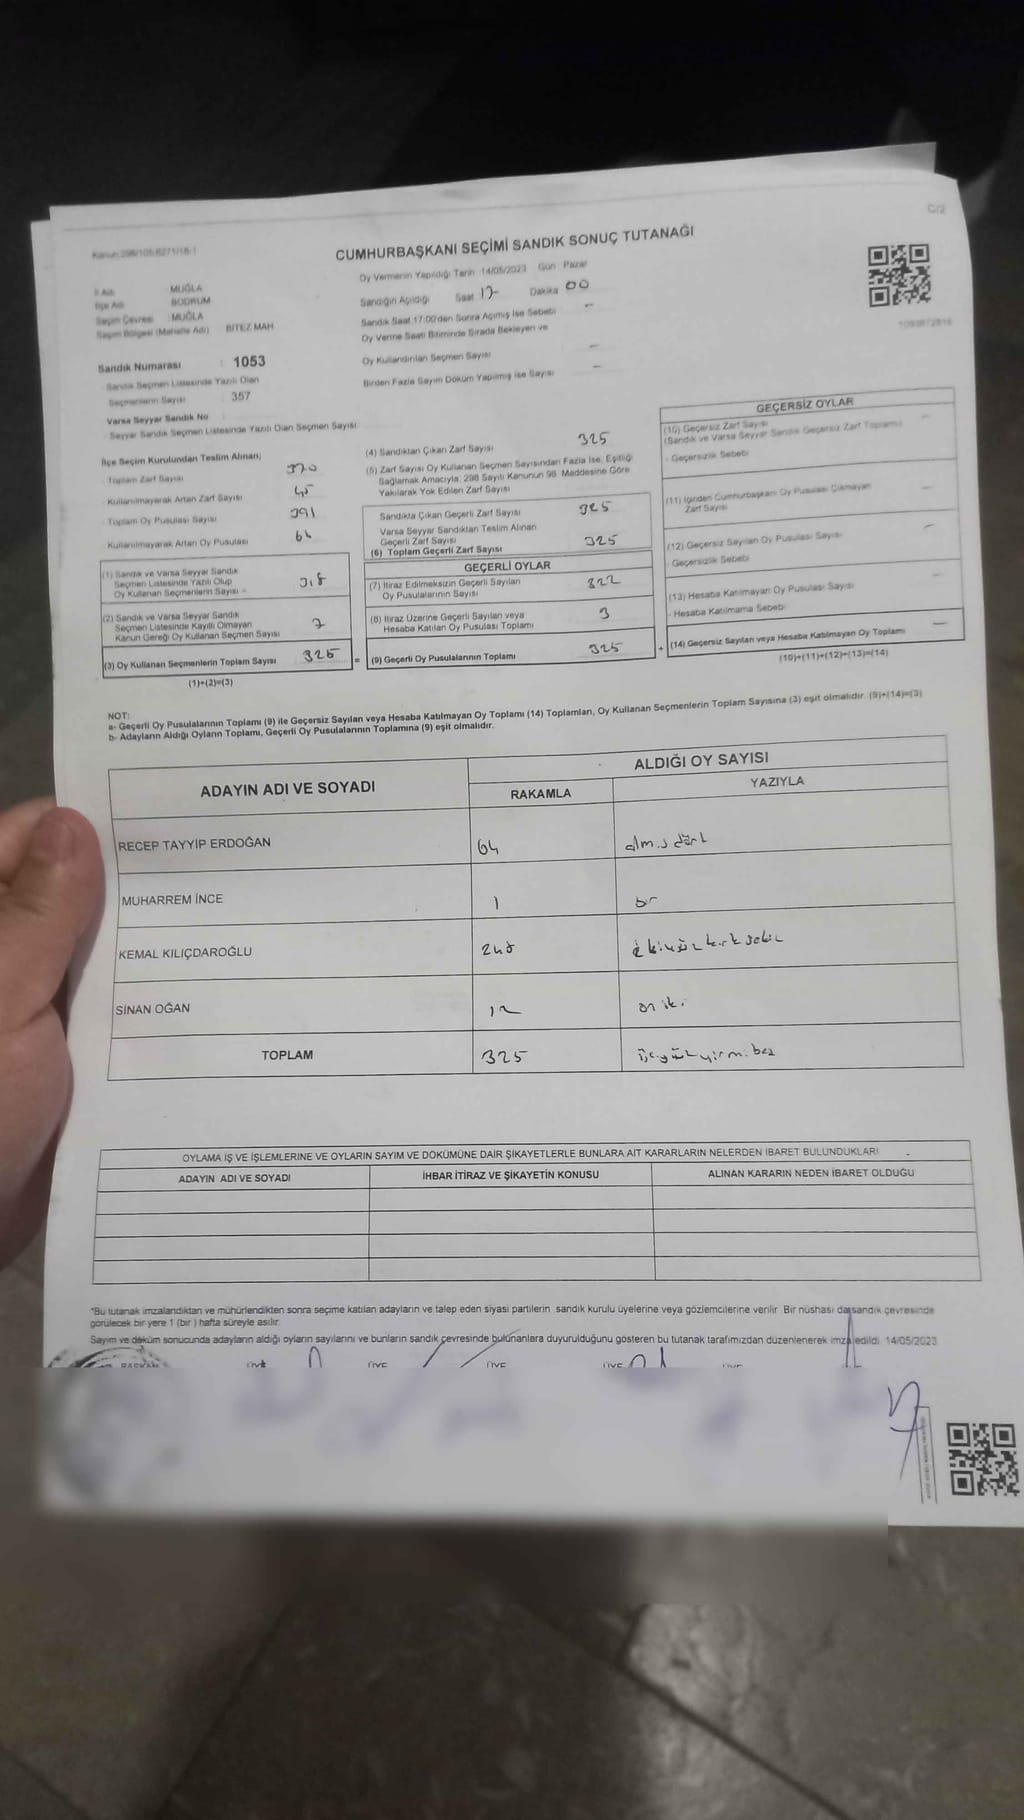 C/2
CUMHURBAŞKANI SEÇİMİ SANDIK SONUÇ TUTANAĞI
Oy Vermenin Yapıldığı Tarih 14/05/2023 Gün Pazar
İl Adı : MUĞLA
İlçe Adı BODRUM
Seçim Çevresi : MUĞLA
Seçim Bölgesi (Mahalle Adı) BİTEZ MAH
Sandığın Açıldığı Saat 17 Dakika 00
Sandık Saat 17:00'den Sonra Açımış İse Sebebi –
Oy Verme Saati Bitiminde Sırada Bekleyen ve
Oy Kullandırılan Seçmen Sayısı –
Birden Fazla Sayım Döküm Yapılmış ise Sayısı –
Sandık Numarası : 1053
Sandık Seçmen Listesinde Yazılı Olan
Seçmenlerin Sayısı 357
Varsa Seyyar Sandık No
- Seyyar Sandık Seçmen Listesinde Yazılı Olan Seçmen Sayısı
İlçe Seçim Kurulundan Teslim Alınan;
Toplam Zarf Sayısı 370
- Kullanılmayarak Artan Zarf Sayısı 45
- Toplam Oy Pusulası Sayısı 391
- Kullanılmayarak Artan Oy Pusulası 66
(1) Sandık ve Varsa Seyyar Sandık
Seçmen Listesinde Yazılı Olup
Oy Kullanan Seçmenlerin Sayısı - 318
(2) Sandık ve Varsa Seyyar Sandık
Seçmen Listesinde Kayıtlı Olmayan
Kanun Gereği Oy Kullanan Seçmen Sayısı 7
(3) Oy Kullanan Seçmenlerin Toplam Sayısı 325 =
(1)+(2)=(3)
(4) Sandıktan Çıkan Zarf Sayısı 325
(5) Zarf Sayısı Oy Kullanan Seçmen Sayısından Fazla İse, Eşitliği
Sağlamak Amacıyla, 298 Sayılı Kanunun 98. Maddesine Göre
Yakılarak Yok Edilen Zarf Sayısı
Sandıkta Çıkan Geçerli Zarf Sayısı 325
Varsa Seyyar Sandıktan Teslim Alınan
Geçerli Zarf Sayısı
(6) Toplam Geçerli Zarf Sayısı 325
GEÇERLİ OYLAR
(7) İtiraz Edilmeksizin Geçerli Sayılan
Oy Pusulalarının Sayısı 322
(8) İtiraz Üzerine Geçerli Sayılan veya
Hesaba Katılan Oy Pusulası Toplamı 3
(9) Geçerli Oy Pusulalarının Toplamı 325 +
GEÇERSİZ OYLAR
(10) Geçersiz Zarf Sayısı –
(Sandık ve Varsa Seyyar Sandık Geçersiz Zarf Toplamı)
- Geçersizlik Sebebi
(11) İçinden Cumhurbaşkanı Oy Pusulası Çıkmayan
Zarf Sayısı –
(12) Geçersiz Sayılan Oy Pusulası Sayısı –
- Geçersizlik Sebebi
(13) Hesaba Katılmayan Oy Pusulası Sayısı –
- Hesaba Katılmama Sebebi
(14) Geçersiz Sayılan veya Hesaba Katılmayan Oy Toplamı –
(10)+(11)+(12)+(13)=(14)
NOT:
a- Geçerli Oy Pusulalarının Toplamı (9) ile Geçersiz Sayılan veya Hesaba Katılmayan Oy Toplamı (14) Toplamları, Oy Kullanan Seçmenlerin Toplam Sayısına (3) eşit olmalıdır. (9)+(14)=(3)
b- Adayların Aldığı Oyların Toplamı, Geçerli Oy Pusulalarının Toplamına (9) eşit olmalıdır.
ADAYIN ADI VE SOYADI
ALDIĞI OY SAYISI
RAKAMLA YAZIYLA
RECEP TAYYİP ERDOĞAN 64 altmış dört
MUHARREM İNCE 1 bir
KEMAL KILIÇDAROĞLU 248 ikiyüz kırk sekiz
SİNAN OĞAN 12 on iki
TOPLAM 325 üçyüz yirmi beş
OYLAMA İŞ VE İŞLEMLERİNE VE OYLARIN SAYIM VE DÖKÜMÜNE DAİR ŞİKAYETLERLE BUNLARA AİT KARARLARIN NELERDEN İBARET BULUNDUKLARI
ADAYIN ADI VE SOYADI İHBAR İTİRAZ VE ŞİKAYETİN KONUSU ALINAN KARARIN NEDEN İBARET OLDUĞU
*Bu tutanak imzalandıktan ve mühürlendikten sonra seçime katılan adayların ve talep eden siyasi partilerin sandık kurulu üyelerine veya gözlemcilerine verilir. Bir nüshası da sandık çevresinde
görülecek bir yere 1 (bir) hafta süreyle asılır.
Sayım ve döküm sonucunda adayların aldığı oyların sayılarını ve bunların sandık çevresinde bulunanlara duyurulduğunu gösteren bu tutanak tarafımızdan düzenlenerek imza edildi. 14/05/2023
BAŞKAN ÜYE ÜYE ÜYE ÜYE ÜYE